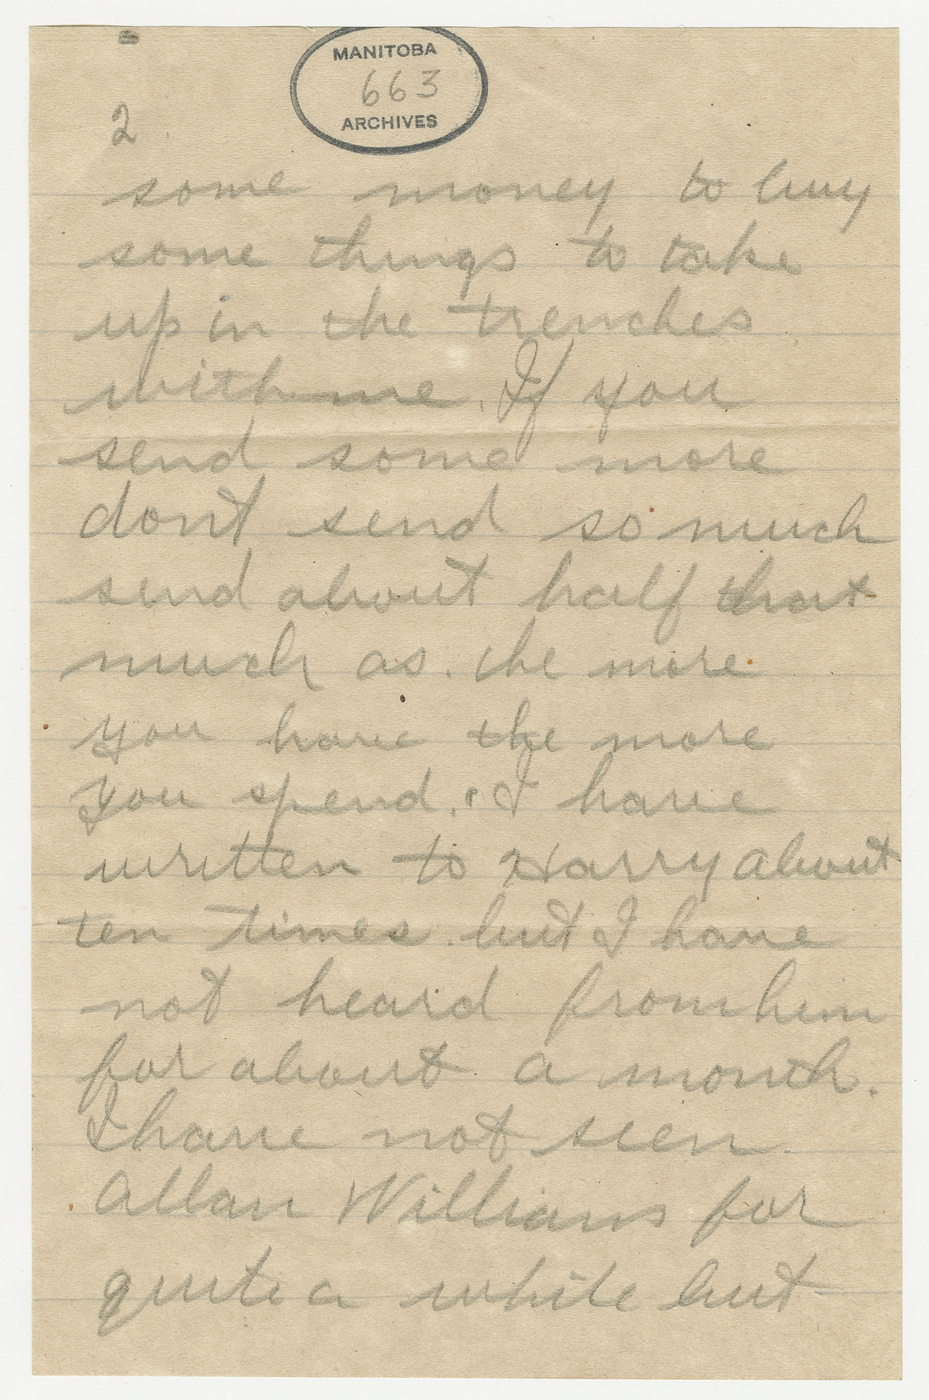 MANITOBA
663
ARCHIVES
2
some money to buy
some things to take
up in the trenches
with me. If you
send some more
dont send so much
send about half that
much as. the more
you have the more
you spend. I have
written to Harry about
ten times but I have
not heard from him
for about a month.
I have not seen
Allan Williams for
quite a while but